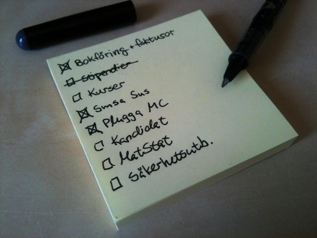 Bokföring + fakturor
Kurser
Smsa Sus
Plugga MC
Kandidat
MatStat
Säkerhetsutb.